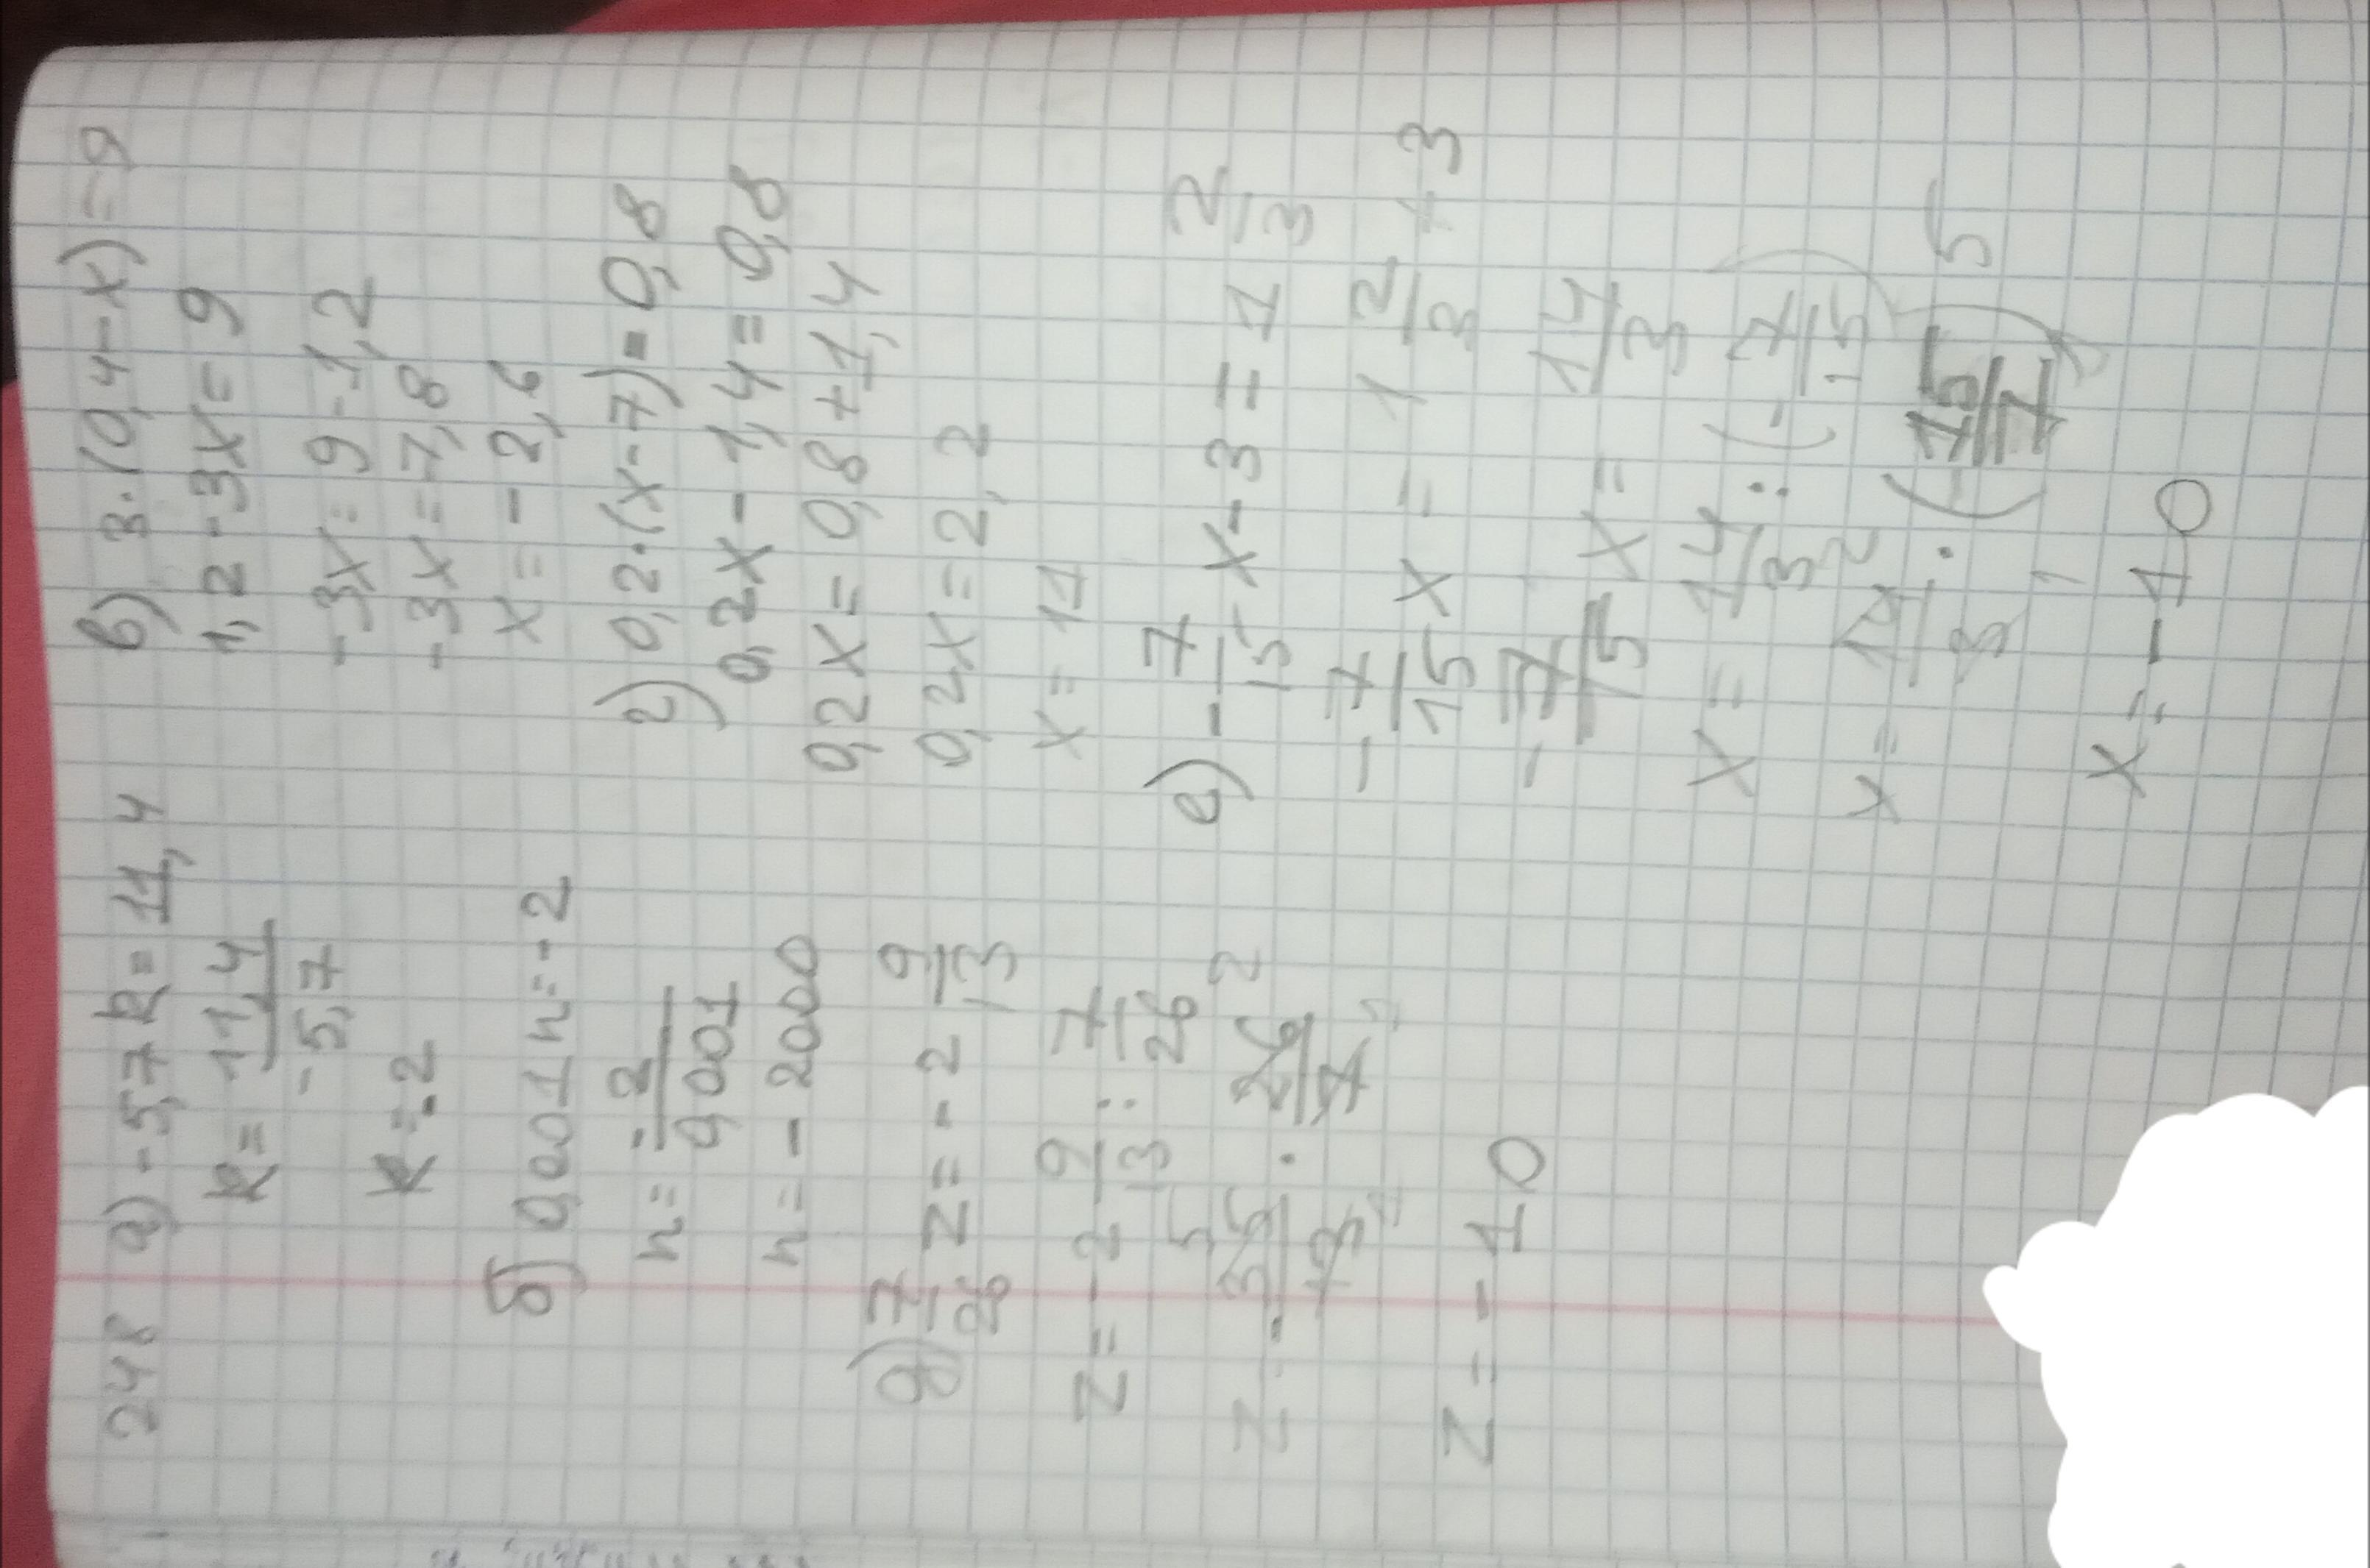 248 а) -5,7k=11,4
k= 11,4/-5,7
k=-2
б) 0,001n=-2
n= -2/0,001
n=-2000
д) 7/26 z=-2 9/13
z=-2 9/13 : 7/26
z=- 35/13 · 26/7 5 2 1 1
z=-10
в) 3·(0,4-x)=9
1,2-3x=9
-3x=9-1,2
-3x=7,8
x=-2,6
г) 0,2·(x-7)=0,8
0,2x-1,4=0,8
0,2x=0,8+1,4
0,2x=2,2
x=11
е) -7/15 x-3=1 2/3
-7/15 x=1 2/3+3
-7/15 x=14/3
x=14/3:(-7/15)
x=14/3·(-15/7) 2 5 1 1
x=-10